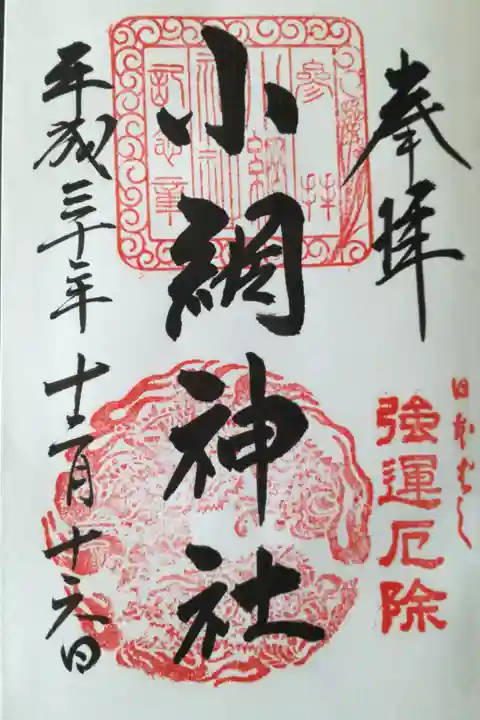 奉拝
日本ばし
強運厄除
小網神社
参拝
小網
神社
記念章
平成三十年十二月十六日